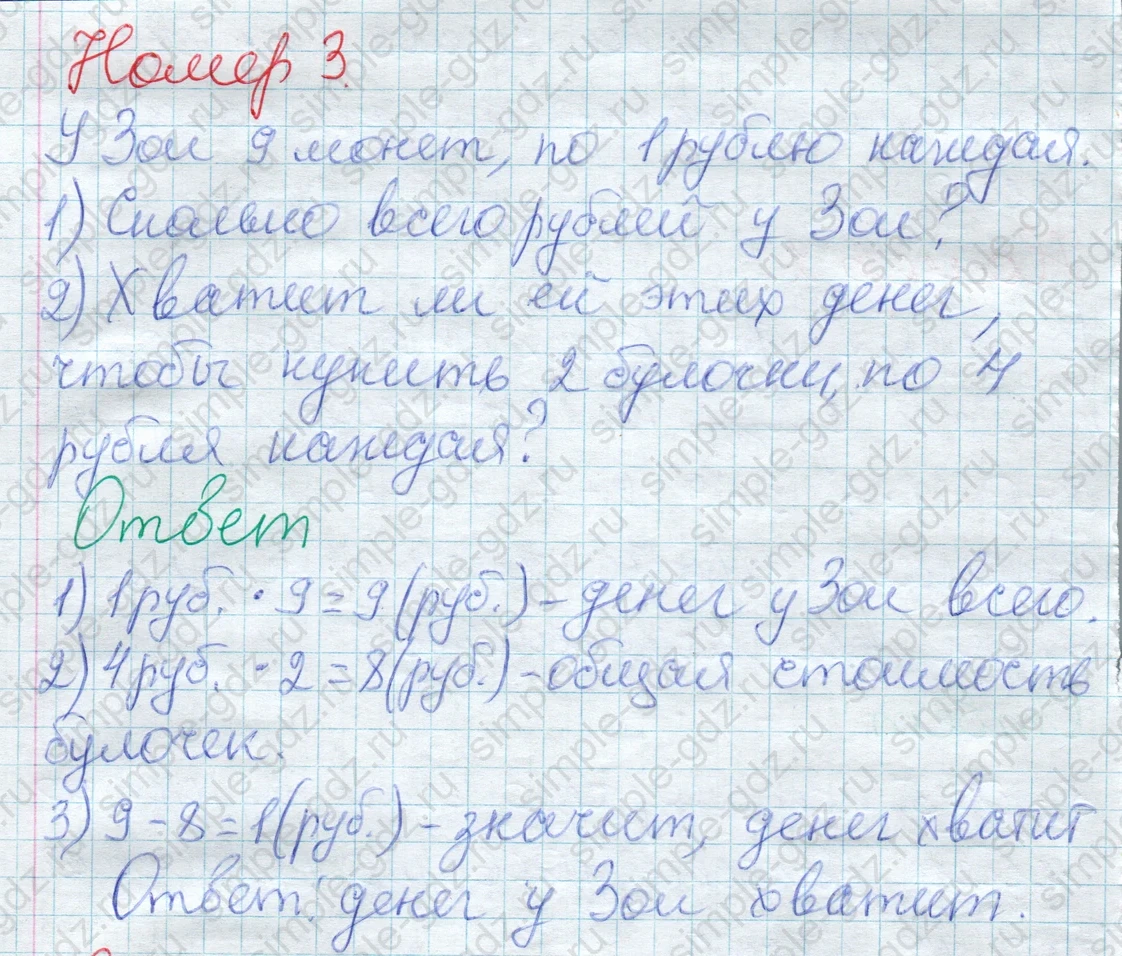 Номер 3.
У Зои 9 монет, по 1 рублю каждая.
1) Сколько всего рублей у Зои?
2) Хватит ли ей этих денег,
чтобы купить 2 булочки, по 4
рубля каждая?
Ответ
1) 1 руб. · 9 = 9 (руб.) – денег у Зои всего.
2) 4 руб. · 2 = 8 (руб.) – общая стоимость
булочек.
3) 9 – 8 = 1 (руб.) – значит, денег хватит
Ответ: денег у Зои хватит.
simple-gdz.ru